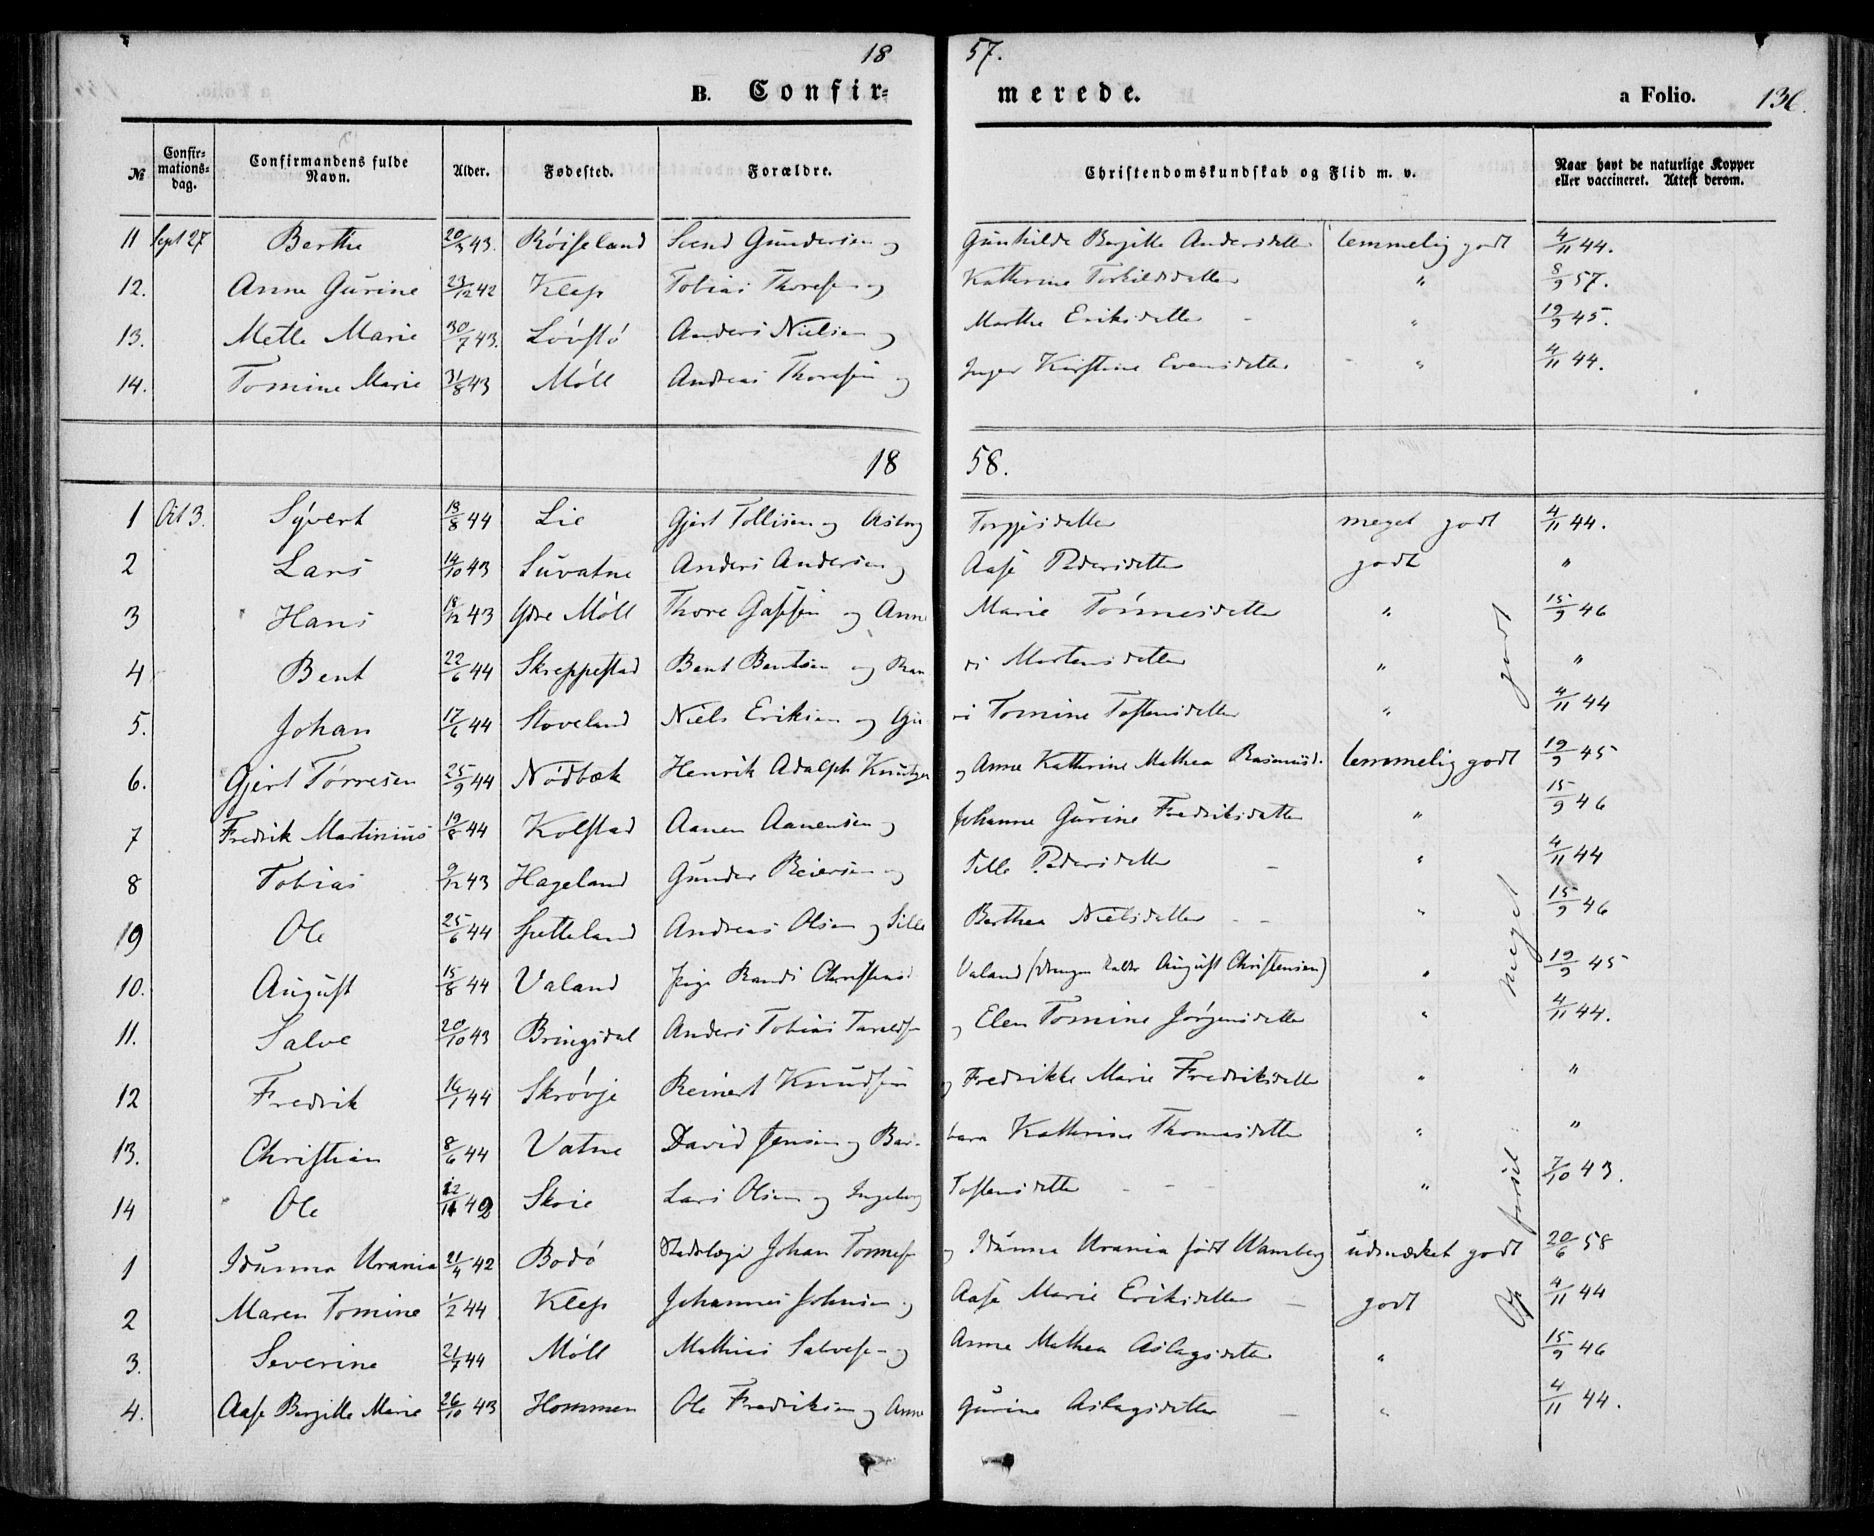 18 57.
B. Confir- merede. a Folio. 136.
№ Confir-mations-dag. Confirmandens fulde Navn. Alder. Fødested. Forældre. Christendomskundskab og Flid m. v. Naar havt de naturlige Kopper eller vaccineret. Attest derom.
11 Sept 27 Berthe 20/3 43. Röisseland Svend Gundersen og Gunhilde Birgitte Andersdatter temmelig godt 4/11 44.
12. Anne Gurine 23/12 42 Klep Tobias Thoresen og Kathrine Torkildsdatter " 8/9 57.
13. Mette Marie 30/7 43. Lövstö Anders Nielsen og Marthe Eriksdatter - " 19/9 45.
14. Tomine Marie 31/8 43 Möll Andreas Thoresen og Inger Kirstine Evensdatter - " 4/11 44.
18 58.
1 Oct 3. Syvert 13/8 44 Lie Gjert Tollisen og Asborg Torgjusdatter meget godt 4/11 44.
2 Lars 14/10 43 Suvatne Anders Andersen og Aase Pedersdatter godt "
3 Hans 18/12 43 Ydre Möll Thore Gassesen og Anne Marie Tönnesdatter " 15/9 46
4 Bent 22/6 44 Skreppestad Bent Bentsen og Ran di Mortensdatter " "
5. Johan 17/6 44 Stoveland Niels Eriksen og Gu ri Tomine Tostensdatter " 4/11 44
6. Gjert Törresen 25/9 44 Nödbæk Henrik Adolph Knutzen og Anne Kathrine Mathea Rasmusd. temmelig godt 19/9 45
7 Fredrik Martinius 19/8 44 Kolstad Aanen Aanensen og Johanne Gurine Fredriksdatter " 15/9 46
8 Tobias 9/12 43 Hageland Gunder Reiersen og Sille Pedersdatter - " 4/11 44
19 Ole 25/6 44 Spetteland Andreas Olsen og Sille Berthea Nielsdatter - - " 15/9 46
10. August 15/8 44 Valand Pige Randi Christensd Valand (Drengen kaldes August Christensen) " 19/9 45
11. Salve 20/10 43 Bringsdal Anders Tobias Taraldsen og Elen Tomine Jörgensdatter " 4/11 44.
12 Fredrik 16/1 44 Skrövje Reinert Knudsen og Fredrikke Marie Fredriksdatter " "
13. Christian 8/6 44 Vatne David Jensen og Bar- bara Kathrine Thomasdatter " "
14 Ole 12/11 42 Skoie Lars Olsen og Ingeborg Tostensdatter - - - " 7/10 43.
1 Idunna Urania 21/4 42 Bodö Stadslæge Johan Tønnesen og Idunna Urania født Wamberg udmærket godt 20/6 58
2 Maren Tomine 1/2 44 Klep Johannes Johnsen og Aase Marie Eriksdatter - godt 4/11 44
3. Severine 21/7 44 Möll Mathias Salvesen og Anne Mathea Aslagsdatter " 15/9 46
4. Aase Birgitte Marie 26/10 43 Hommen Ole Fredriksen og Anne Gurine Aslagsdatter - " 4/11 44.
meget godt